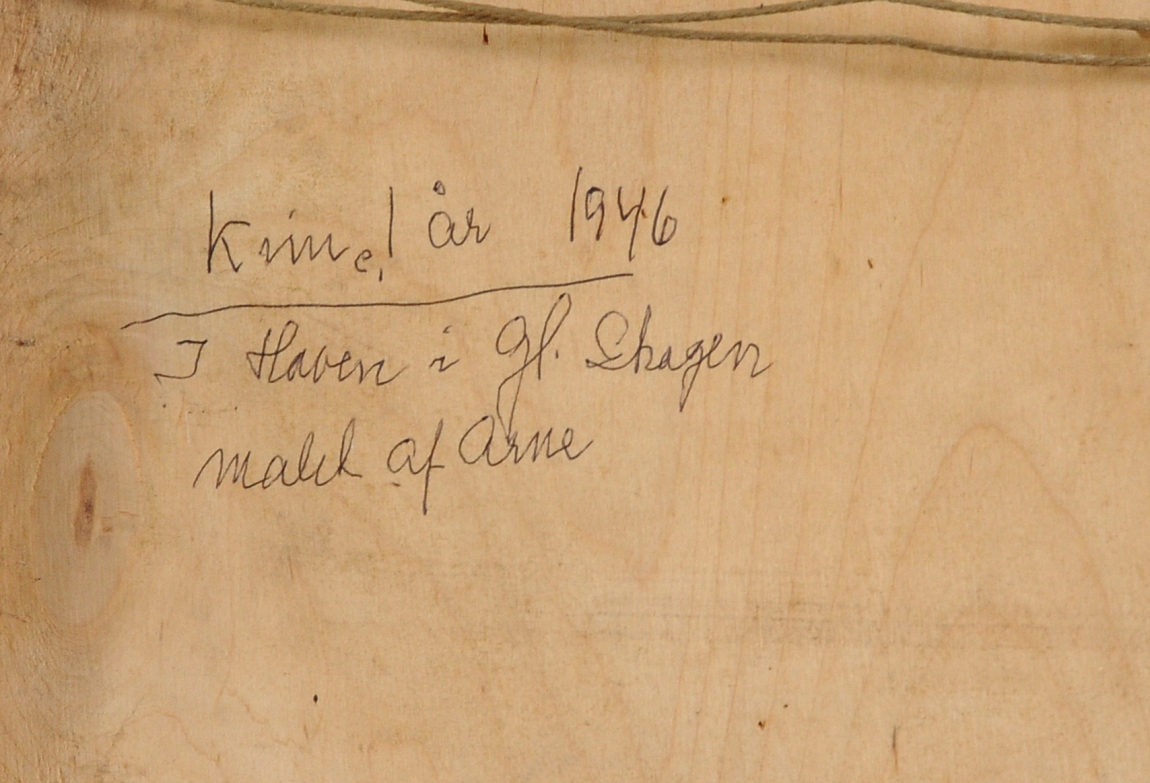 Kim 1 år 1946
I Haven i Gl. Skagen
malet af Arne